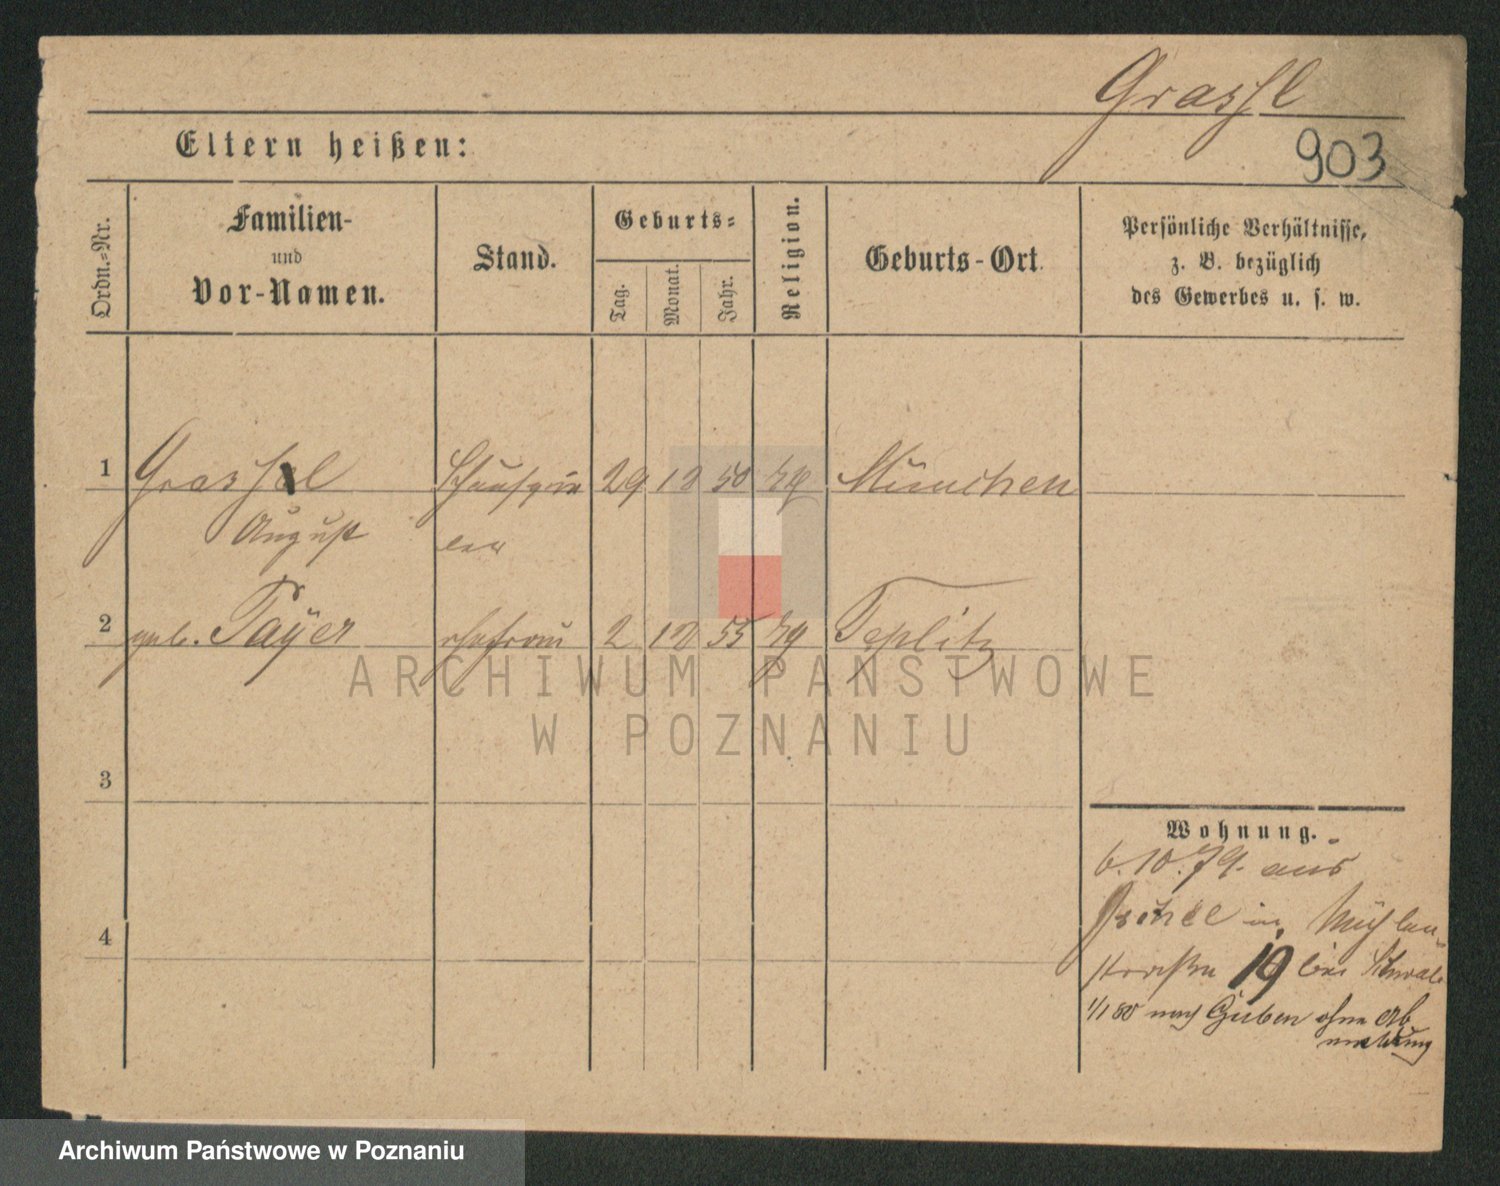 Grassl
903
Eltern heißen:
Ordn.-Nr.
Familien-
und
Vor-Namen.
Stand.
Geburts-
Tag.
Monat.
Jahr.
Religion.
Geburts-Ort.
Persönliche Verhältnisse,
z. B. bezüglich
des Gewerbes u. s. w.
1 Grassl Schauspie 29 12 50 München
August ler
2 geb. Payer Ehefrau 2 12 55 Teplitz
3
4
Wohnung.
6.10.79. aus
in Mühlen-
straße 19 bei
1/1 80 nach Guben ohne Ab
meldung
ARCHIWUM PAŃSTWOWE
W POZNANIU
Archiwum Państwowe w Poznaniu